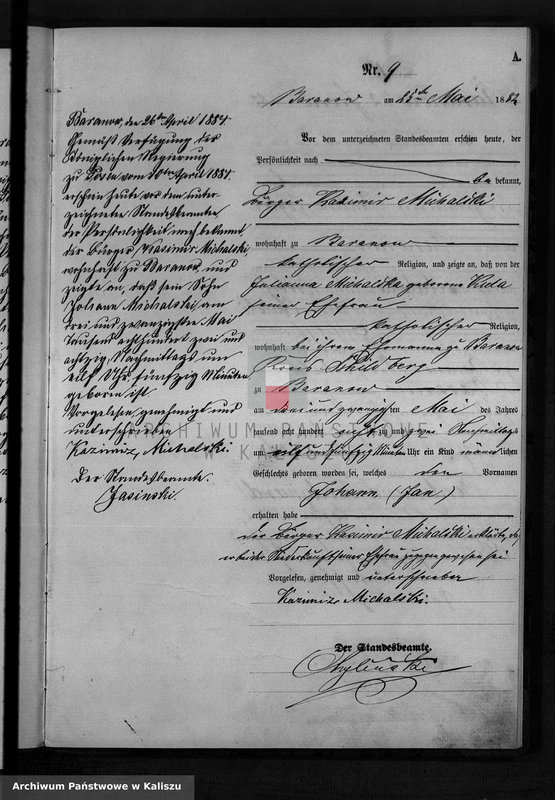 A.
Nr. 9
Baranow am 25ten Mai 1882
Vor dem unterzeichneten Standesbeamten erschien heute, der
Persönlichkeit nach
be kannt,
Bürger Kasimir Michalski
wohnhaft zu Baranow
katholischer Religion, und zeigte an, daß von der
Julianna Michalska geborene Kula
seiner Ehefrau
katholischer Religion,
wohnhaft bei ihrem Ehemanne zu Baranow
Kreis Schildberg
zu Baranow
am drei und zwanzigsten Mai des Jahres
tausend acht hundert achtzig und zwei Nachmittags
um eilf und fünfzig Minuten Uhr ein Kind männlichen
Geschlechts geboren worden sei, welches den Vornamen
Johann (Jan)
erhalten habe
Der Bürger Kasimir Michalski erklärte, daß
er bei der Niederkunft seiner Ehefrau zugegen gewesen sei
Vorgelesen, genehmigt und unterschrieben
Kazimir Michalski.
Der Standesbeamte.
Baranow, den 26ten April 1884.
Gemäß Verfügung der
Königlichen Regierung
zu Posen vom April 1884.
erschien heute vor dem unter-
zeichneten Standesbeamten
der Persönlichkeit nach bekannt
der Bürger Kasimir Michalski,
wohnhaft zu Baranow und
zeigte an, daß sein Sohn
Johann Michalski, am
drei und zwanzigsten Mai
tausend achthundert zwei und
achtzig, Nachmittags um
eilf Uhr fünfzig Minuten
geboren ist.
Vorgelesen, genehmigt und
unterschrieben
Kazimir Michalski.
Der Standesbeamte.
Jasinski.
ARCHIWUM PAŃSTWOWE
W KALISZU
Archiwum Państwowe w Kaliszu